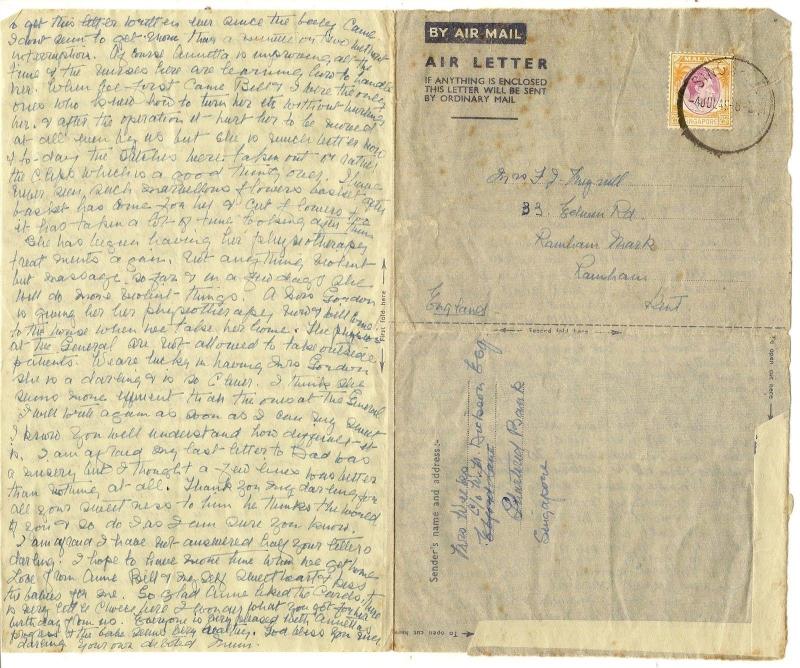 to get this letter written ever since the baby came
I dont seem to get more than a minute or two without
interruption. Of course Annetta is improving all the
time & the nurses here are learning how to handle
her. When she first came Bill & I were the only
ones who knew how to turn her etc without hurting
her. & after the operation it hurt her to be moved
at all even by us but she is much better now
& to-day the stitches were taken out or rather
the clips which is a good thing over. I have
never seen such marvellous flowers basket after
basket has come for her & cut flowers too
it has taken a lot of time looking after them
She has begun having her physiotherapy
treatments again. Not anything violent
but massage so far & in a few days she
will do more violent things. A Mrs Gordon
is giving her her physiotherapy now & will come
to the house when we take her home. The
at the General are not allowed to take outside
patients. We are lucky in having Mrs Gordon
she is a darling & is so clever. I think she
seems more efficient than the ones at the General
I will write again as soon as I can my sweet
I know you will understand how difficult it
is. I am afraid my last letter to Dad was
a misery but I thought a few lines was better
than nothing at all. Thank you my darling for
all your sweetness to him he thinks the world
of you & so do I as I am sure you know.
I am afraid I have not answered half your letters
darling. I hope to have more time when we get home
Love from Anne Bill & my self sweetheart & kiss
the babies for me. So glad Anne liked the cards, there
is very little choice here I wonder what you got for her
birthday from us. Everyone is very pleased with Annettas
progress & the babe seems very healthy. God bless you
darling Your own devoted Mum.
First fold here
BY AIR MAIL
AIR LETTER
IF ANYTHING IS ENCLOSED
THIS LETTER WILL BE SENT
BY ORDINARY MAIL
MALAYA
SINGAPORE
Mrs F J
33 Edwin Rd.
Rainham Mark
Rainham
Kent
England
Second fold here
To open cut here
Sender's name and address:-
Mrs Weeks
C/o Dickson Esq
Chartered Bank
Singapore
To open cut here